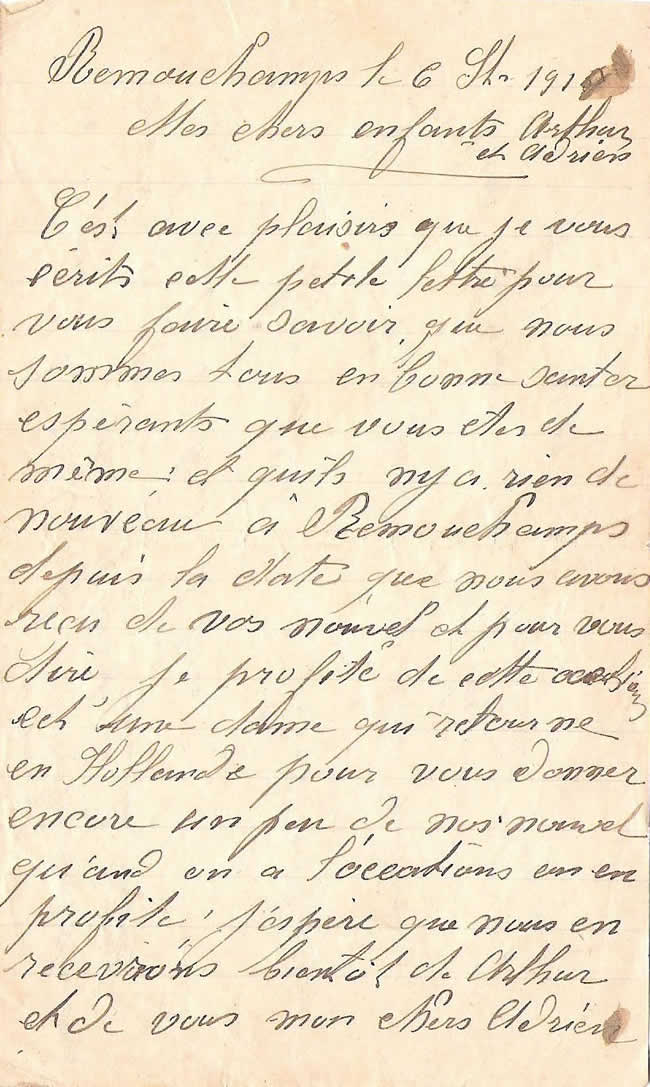 Remouchamps le 6 St. 191
Mes chers enfants Arthur
et Adrien
C'ést avec plaisirs que je vous
écrits cette petite lettre pour
vous faire savoir, que nous
sommes tous en bonne santer
espérants que vous etes de
même et quils ny a rien de
nouvéau à Remouchamps
depuis la date que nous avons
recu de vos nouvel et pour vous
dire je profite de cette
est une dame qui retourne
en Hollande pour vous donner
encore un peu de nos nouvel
qu'and on a l'occations on en
profite, j'espère que nous en
recevrons bientôt de Arthur
et de vous mon chers Adrien